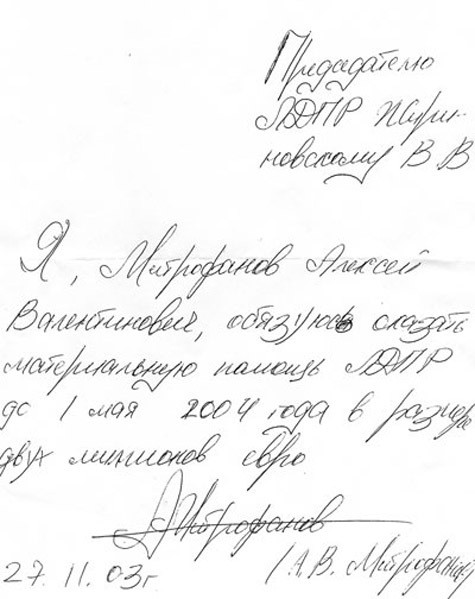 Председателю
ЛДПР Жири-
новскому В.В
Я, Митрофанов Алексей
Валентинович, обязуюсь оказать
материальную помощь ЛДПР
до 1 мая 2004 года в размере
двух миллионов евро
Митрофанов
27.11.03г /А.В. Митрофанов/